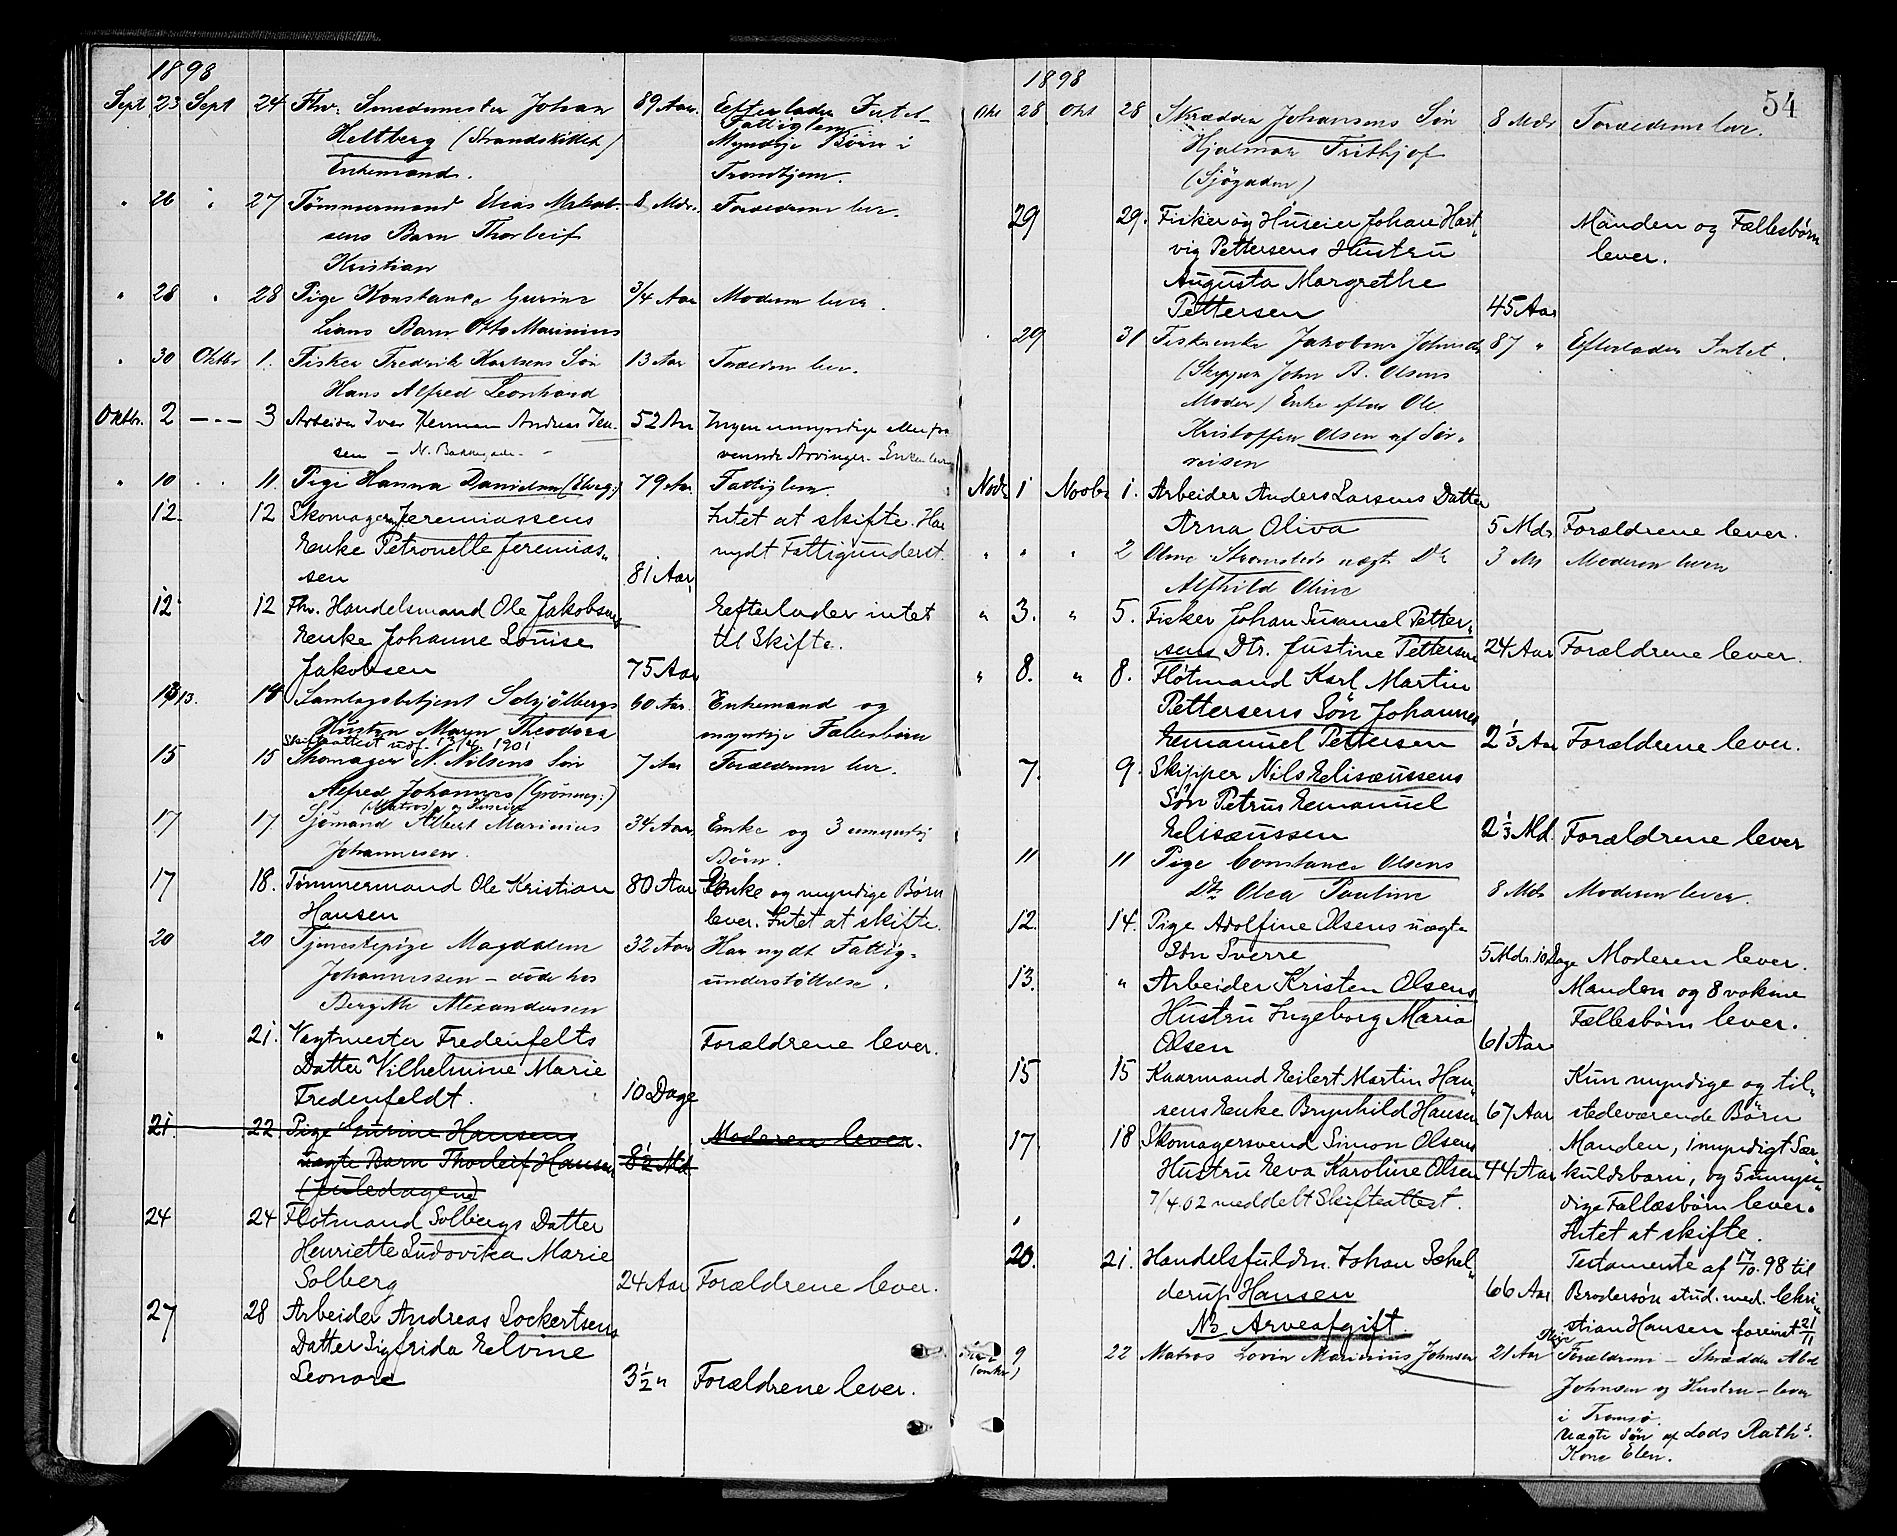 1898
Sept 23 Sept 24 Fhv. Smedemester Johan 89 Aar. Efterlader Intet
Heltberg (Strandskillet) Fattiglem
Enkemand. Myndige Børn i
Tromhjem.
" 26 " 27 Tømmermand Elias 8 Mdr. Forældrene lever.
sens Barn Thorleif
Kristian
" 28 " 28 Pige Konstance Gurine 3/4 Aar Moderen lever.
Lians Barn Otto Marinius
" 30 Oktbr 1. Fisker Fredrik Karlsens Søn 13 Aar Forældrene lever.
Hans Alfred Leonhard
Oktbr. 2 -"- 3 Arbeider Iver Herman Andreas Jen- 52 Aar Ingen umyndige eller fra
sen - N. Bakkegade - værende Arvinger. Enken lever
" 10 " 11. Pige Hanna Danielsen 79 Aar Fattiglem.
12 12 Skomager Jeremiassens Intet at skifte. Har
Enke Petronelle Jeremias- nydt Fattigunderst.
sen 81 Aar
12 12 Fhv. Handelsmand Ole Jakobsens Efterlader intet
Enke Johanne Louise til Skifte.
Jakobsen 75 Aar
13. 14 Samlagsbetjent Solvjølbergs 60 Aar. Enkemand og
Hustru Maren Theodora myndige Fællesbørn
Skifteattest udf. 13/4 1901
15 15 Skomager N. Nilsens Søn 7 Aar Forældrene lever.
Alfred Johannes (Grønneg:)
(Matros) og Huseier
17 17 Sjømand Albert Marinius 34 Aar Enke og 3 umyndig
Johannesen. Børn.
17 18. Tømmermand Ole Kristian 80 Aar Enke og myndige Børn
Hansen lever. Intet at skifte.
20 20 Tjenestepige Magdalena 32 Aar Har nydt Fattig-
Johannessen - døde hos understøttelse.
Bergitte Alexandersen
" 21. Vagtmester Fredenfelts Forældrene lever.
Datter Vilhelmine Marie
Fredenfeldt. 10 Dage
21. 22 Pige Gurine Hansens Moderen lever.
uægte Barn Thorleif Hansen 8½ Md.
(Juledagene)
24 24 Flotmand Solbergs Datter
Henriette Ludovika Marie
Solberg 24 Aar Forældrene lever.
27 28 Arbeider Andreas Lockertsens
Datter Sigfrida Elvine
Leonore 3½ " Forældrene lever.
54
1898
Okt 28 Okt 28 Skrædder Johansens Søn 8 Mdr Forældrene lever.
Hjalmar Frithjof
(Sjøgaden)
29 29. Fisker og Huseier Johan Hart- Manden og Fællesbørn
vig Pettersens Hustru lever.
Augusta Margrethe
Pettersen 45 Aar
29 31 Fiskerenke Jakobine Johnsda 87 " Efterlader Intet.
(Skipper John A. Olsens
Moder) Enke efter Ole
Kristoffer Olsen af Sør-
reisen
Novb 1 Novbr 1. Arbeider Anders Larsens Datter
Arna Oliva 5 Mdr Forældrene lever.
" " " 2 Oline Strømsteds uægt. Dtr 3 M Moderen lever
Alfhild Oline
" 3. " 5. Fisker Johan Samuel Petter-
sens Dtr. Justine Pettersen 24 Aar Forældrene lever.
" 8. " 8. Flotmand Karl Martin
Pettersens Søn Johannes
Emanuel Pettersen 2⅓ Aar Forældrene lever.
7. 9. Skipper Nils Elisæussens
Søn Petrus Emanuel
Elisæussen 2⅓ Md. Forældrene lever
11 11 Pige Constance Olsens
Dtr Olea Pauline 8 Mdr Moderen lever.
12. 14. Pige Adolfine Olsens uægte
Søn Sverre 5 Mdr. 10 Dage Moderen lever.
13. " Arbeider Kristen Olsens Manden og 8 voksne
Hustru Ingeborg Maria Fællesbørn lever.
Olsen 61 Aar
15 15 Kaarmand Eilert Martin Han- Kun myndige og til-
sens Enke Brynhild Hansen 67 Aar stedeværende Børn
17 18 Skomagersvend Simon Olsens Manden, 1 myndigt Sær-
Hustru Eva Karoline Olsen 44 Aar kuldsbarn, og 5 umyn-
7/4 02 meddelt Skifteattest. dige Fællesbørn lever.
Intet at skifte.
20. 21. Handelsfuldm. Johan Schel- Testamente af 17/10. 98 til
derup Hansen 66 Aar Brodersøn stud. med. Chri-
NB Arveafgift. stian Hansen forevist 21/11
9 22 Matros Lovin Marinius Johnsen 21 Aar Forældrene - Skrædder Abel
Johnsen og Hustru - lever
i Tromsø.
Uægte Søn af Lods Rath's
Kone Elen.